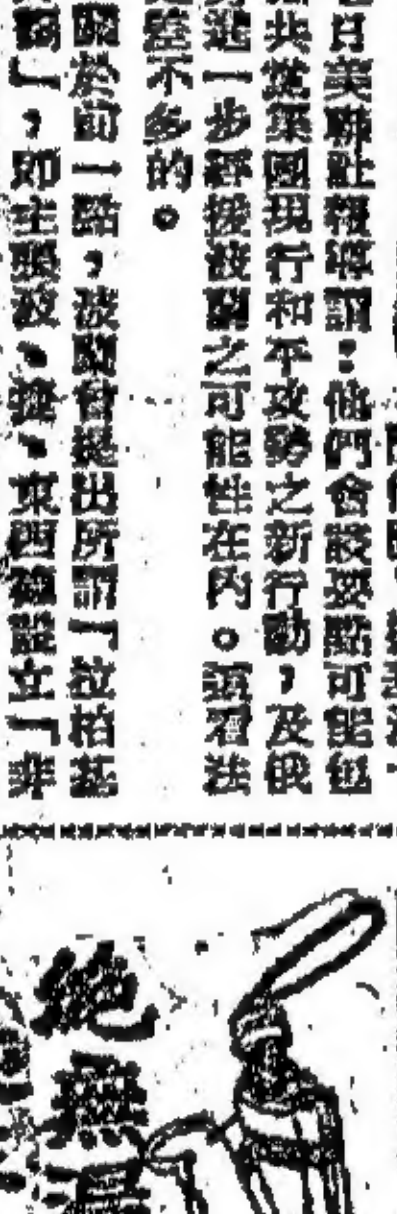 日美聯社報導謂：他們會談要點可能包
共黨集團現行和平攻勢之新行動，及俄
進一步經援波蘭之可能性在內。這看法
差不多的。
關於前一點，波蘭曾提出所謂「拉柏基
」，即主張波、捷、東西德設立「非
絕無